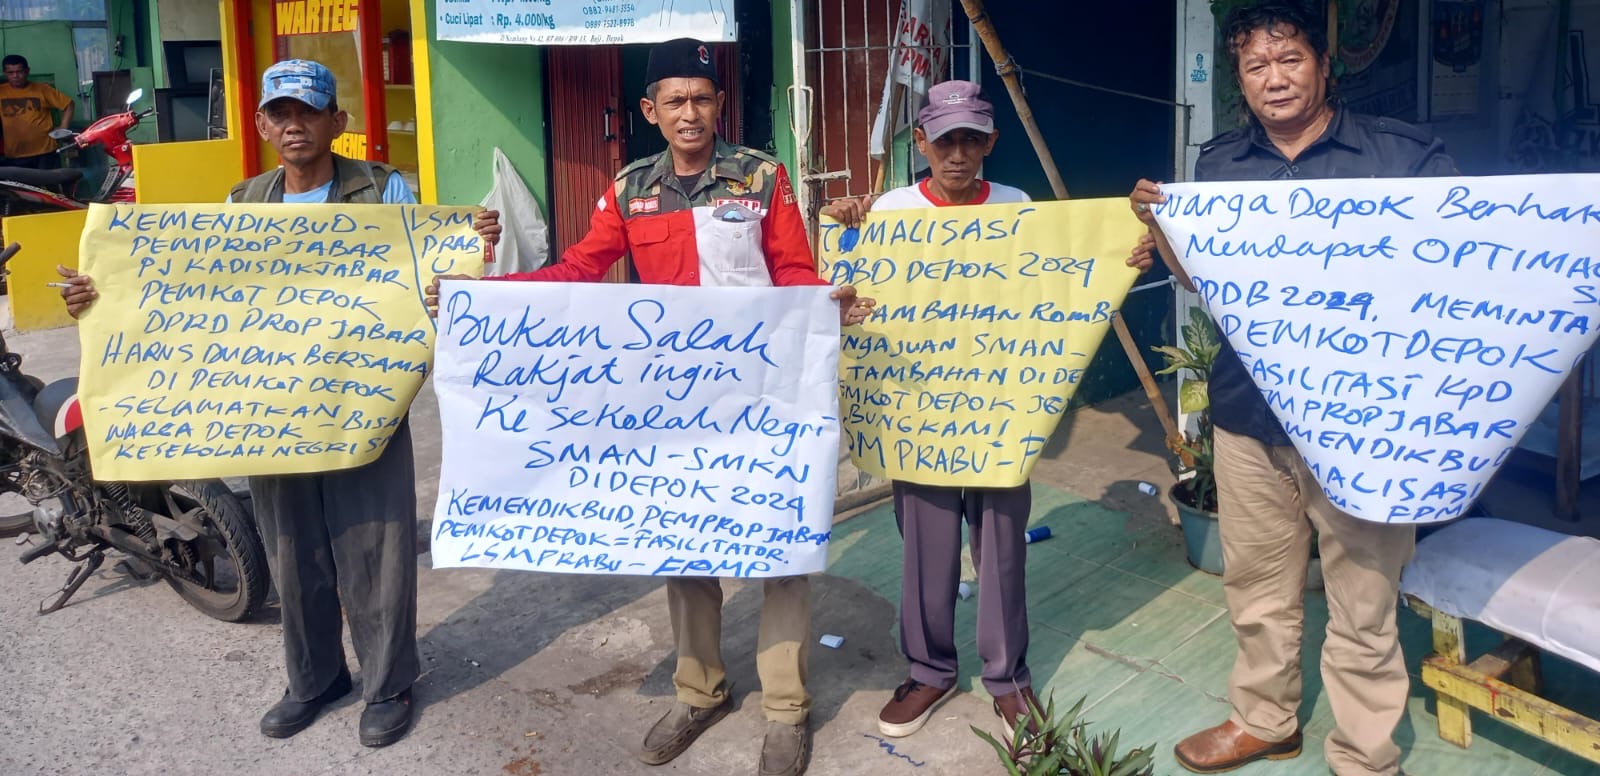 WARTEG
Cuci Lipat : Rp. 4.000/kg
0882-9481-3554
0889 7522-8978
Jl Kembang No 42, RT 006 / RW 13, Beji, Depok
KEMENDIKBUD -
PEMPROP JABAR
PJ KADISDIK JABAR
PEMKOT DEPOK
DPRD PROP JABAR.
HARUS DUDUK BERSAMA
DI PEMKOT DEPOK
- SELAMATKAN - BISA
WARGA DEPOK -
KESEKOLAH NEGRI
LSM
PRAB
U
Bukan Salah
Rakjat ingin
Ke sekolah Negri
SMAN - SMKN
DI DEPOK 2024
KEMENDIKBUD, PEMPROP JABAR
PEMKOT DEPOK = FASILITATOR.
LSM PRABU - FPMP
MALISASI
DEPOK 2024
AMBAHAN ROMBE
NGAJUAN SMAN -
TAMBAHAN DI DE
EMKOT DEPOK
BUNGKAMI
PRABU - F
Warga Depok Berhak
Mendapat OPTIMA
PPDB 2024. MEMINTA
PEMKOT DEPOK
FASILITASI KPD
EMPROP JABAR -
EMENDIKBUD
MALISASI
FPM